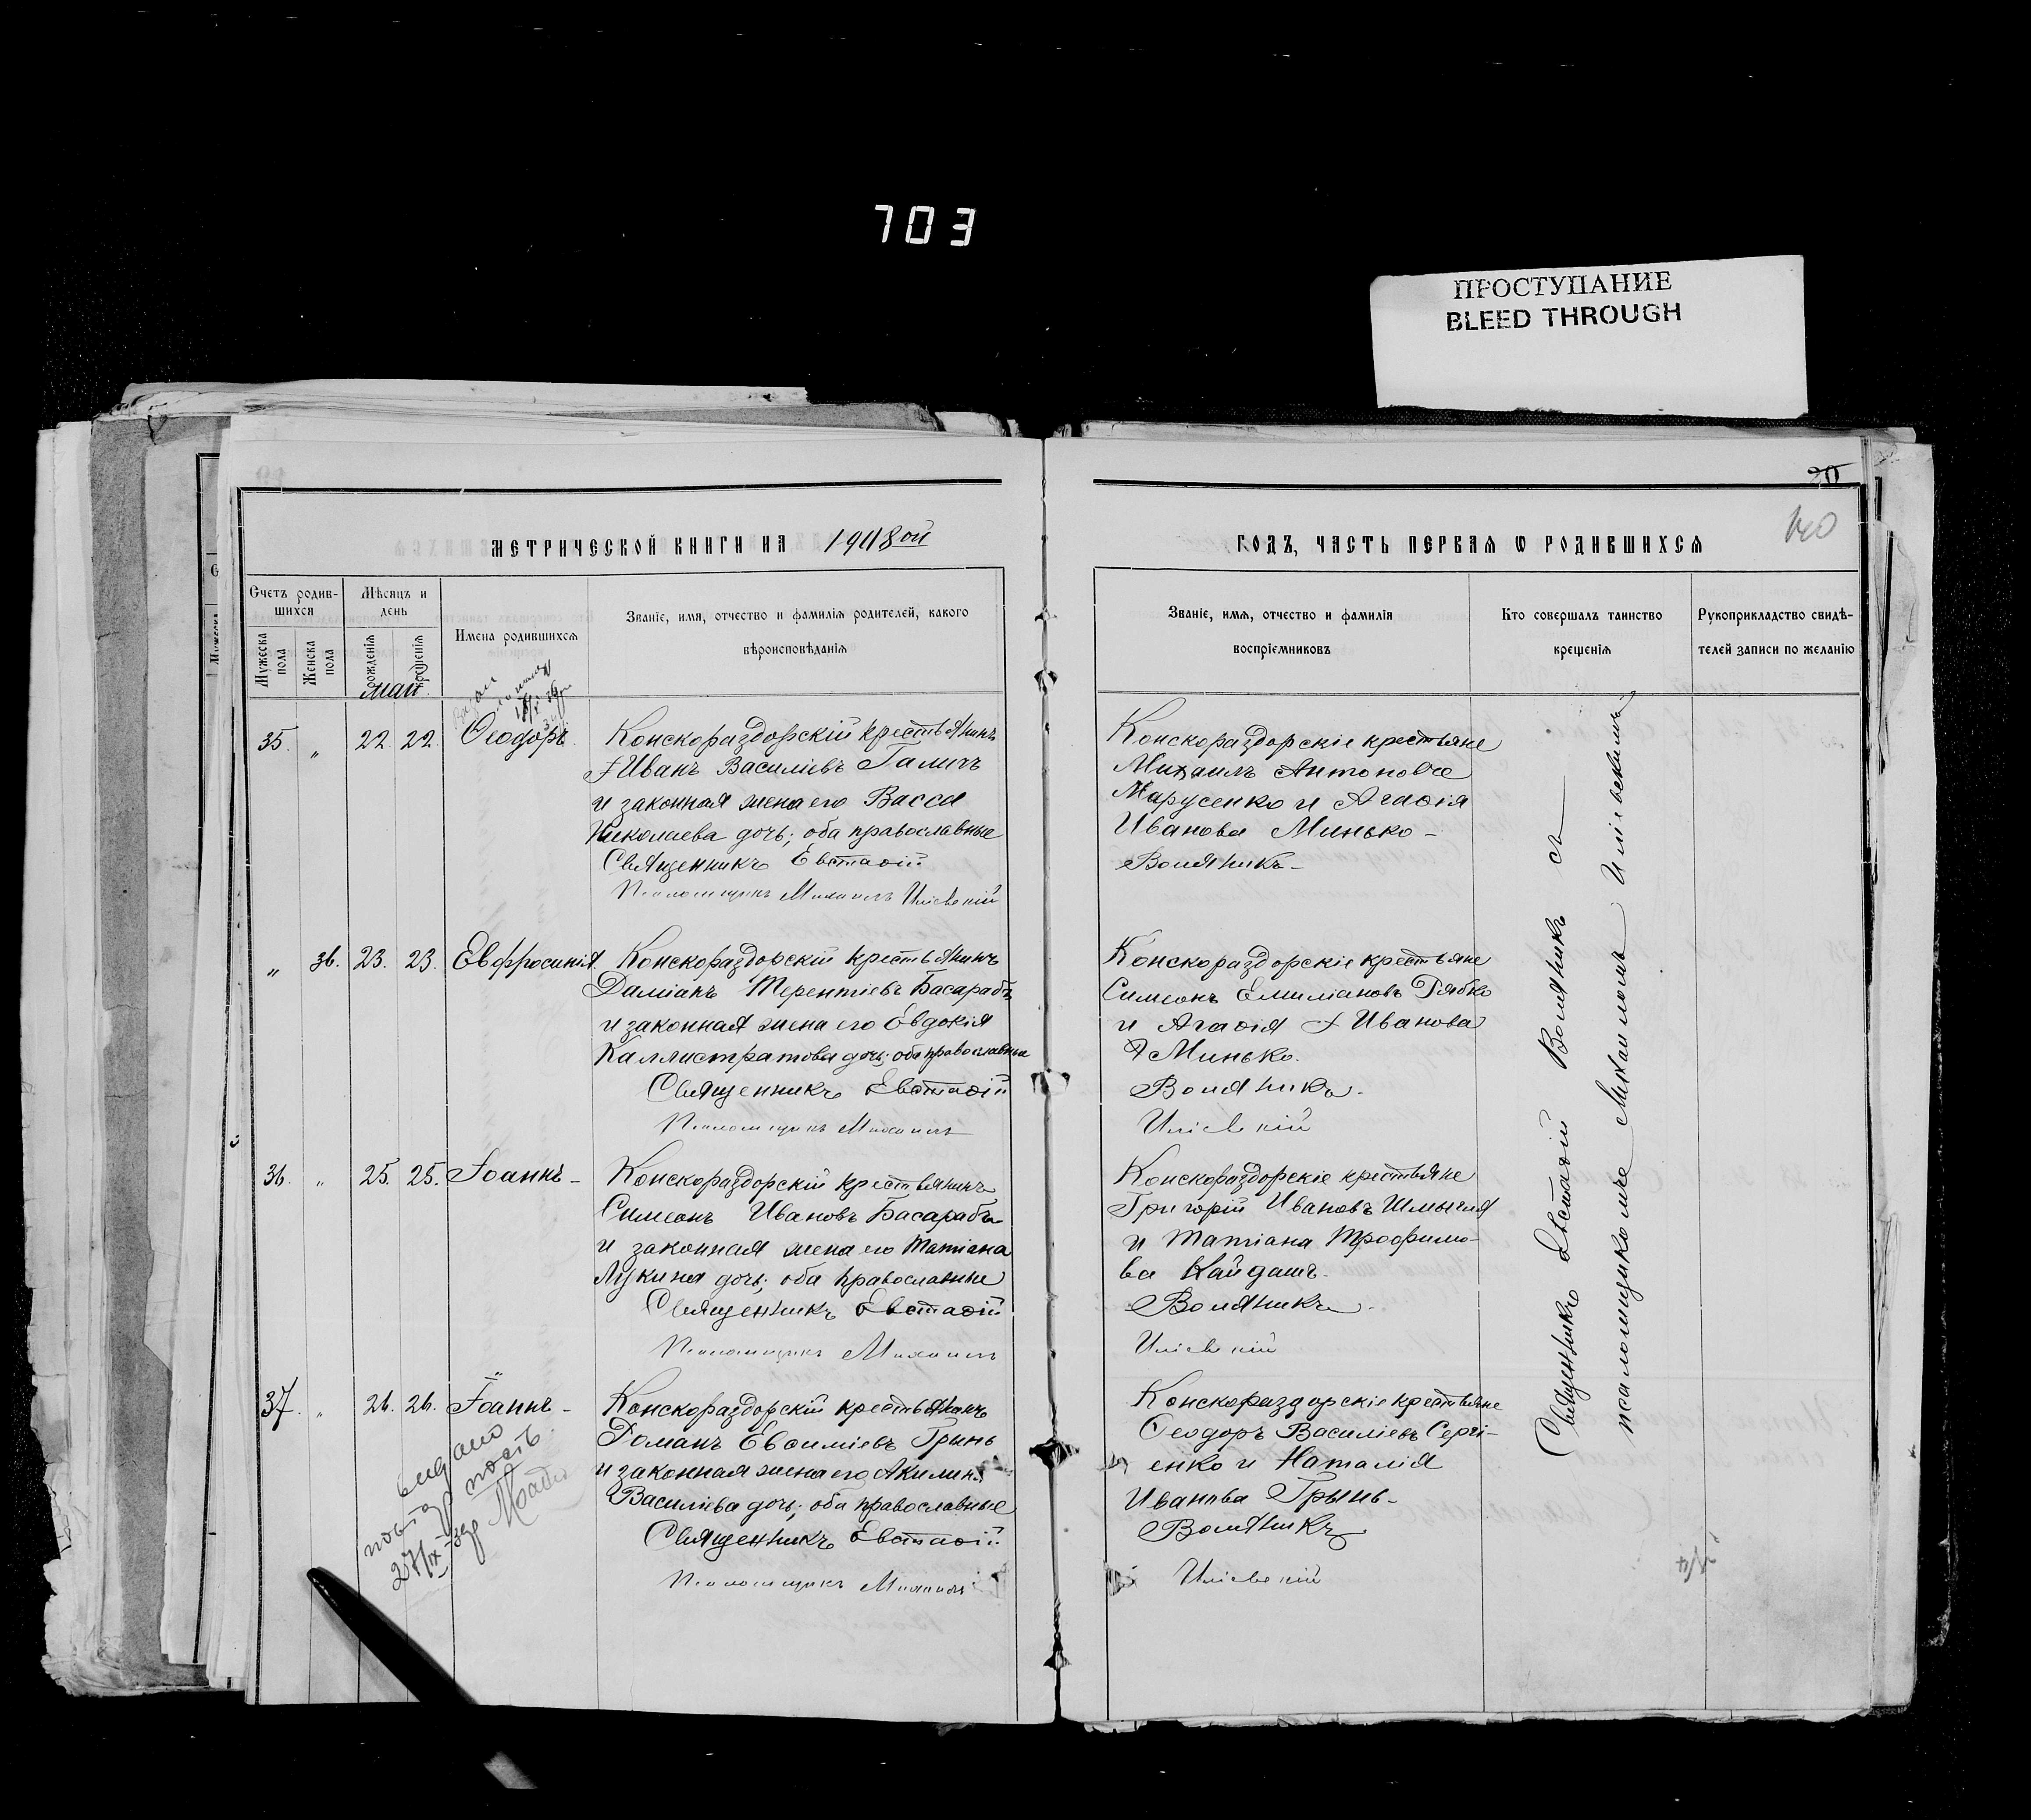 703
ПРОСТУПАНИЕ
BLEED THROUGH
20
140
МЕТРИЧЕСКОЙ КНИГИ НА 1908ой
ГОДЪ, ЧАСТЬ ПЕРВАЯ Ѡ РОДИВШИХСЯ
Счетъ родив-
шихся
Мужеска
пола
Женска
пола
Мѣсяцъ и
день
рожденія
крещенія
Имена родившихся
Званіе, имя, отчество и фамилія родителей, какого
вѣроисповѣданія
Званіе, имя, отчество и фамилія
воспріемниковъ
Кто совершалъ таинство
крещенія
Рукоприкладство свидѣ-
телей записи по желанію
Май
35. " 22 22 Ѳеодоръ
Конскораздорскій крестьянинъ
Иванъ Василіевъ Галичъ
и законная жена его Васса
Николаева дочь; оба православные
Священникъ Евстаѳій
Псаломщикъ Михаилъ Иліевскій
Конскораздорскіе крестьяне
Михаилъ Антоновъ
Марусенко и Агаѳія
Иванова Минько -
Воляникъ -
" 36. 23. 23. Евфросинія.
Конскораздорскій крестьянинъ
Даміанъ Терентіевъ Басарабъ
и законная жена его Евдокія
Каллистратова дочь; оба православные
Священникъ Евстаѳій
Псаломщикъ Михаилъ
Конскораздорскіе крестьяне
Симеонъ Емиліановъ Рябко
и Агаѳія Иванова
Минько.
Воляникъ.
Иліевскій
36. " 25. 25. Іоаннъ -
Конскораздорскій крестьянинъ
Симеонъ Ивановъ Басарабъ
и законная жена его Татіана
Лукина дочь; оба православные
Священникъ Евстаѳій
Псаломщикъ Михаилъ
Конскораздорскіе крестьяне
Григорій Ивановъ Шмыгля
и Татіана Трофимо-
ва Кайдашъ.
Воляникъ.
Иліевскій
37. " 26. 26. Іоаннъ -
Конскораздорскій крестьянинъ
Романъ Евѳиміевъ Грынь
и законная жена его Акилина
Василіева дочь; оба православные
Священникъ Евстаѳій
Псаломщикъ Михаилъ
Конскораздорскіе крестьяне
Ѳеодоръ Василіевъ Сергі-
енко и Наталія
Иванова Грынь -
Воляникъ
Иліевскій
видано
27/IX - 32р
Священникъ Евстаѳій Воляникъ съ
псаломщикомъ Михаиломъ Иліевскимъ